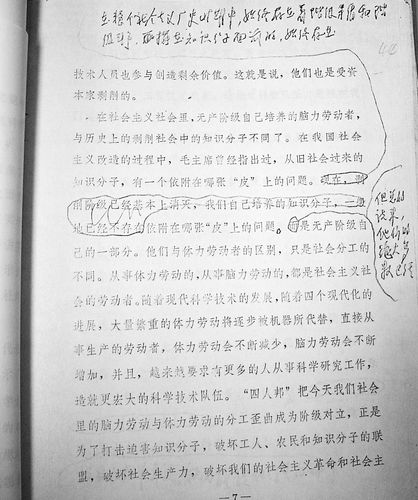 在整个社会主义历史时期，始终存在着
技术人员也参与创造剩余价值。这就是说，他们也是受资
本家剥削的。
在社会主义社会里，无产阶级自己培养的脑力劳动者，
与历史上的剥削社会中的知识分子不同了。在我国社会
主义改造的过程中，毛主席曾经指出过，从旧社会过来的
知识分子，有一个依附在哪张“皮”上的问题。现在，剥
削阶级已经基本上消灭，我们自己培养的知识分子，一般
地已经不存在依附在哪张“皮”上的问题。
是无产阶级自
己的一部分。他们与体力劳动者的区别，只是社会分工的
不同。从事体力劳动的，从事脑力劳动的，都是社会主义社
会的劳动者。随着现代科学技术的发展，随着四个现代化的
进展，大量繁重的体力劳动将逐步被机器所代替，直接从
事生产的劳动者，体力劳动会不断减少，脑力劳动会不断
增加，并且，越来越要求有更多的人从事科学研究工作，
造就更宏大的科学技术队伍。“四人帮”把今天我们社会
里的脑力劳动与体力劳动的分工歪曲成为阶级对立，正是
为了打击迫害知识分子，破坏工人、农民和知识分子的联
盟，破坏社会生产力，破坏我们的社会主义革命和社会主
但总的
说来，
他们的
绝大多
数已经
—7—